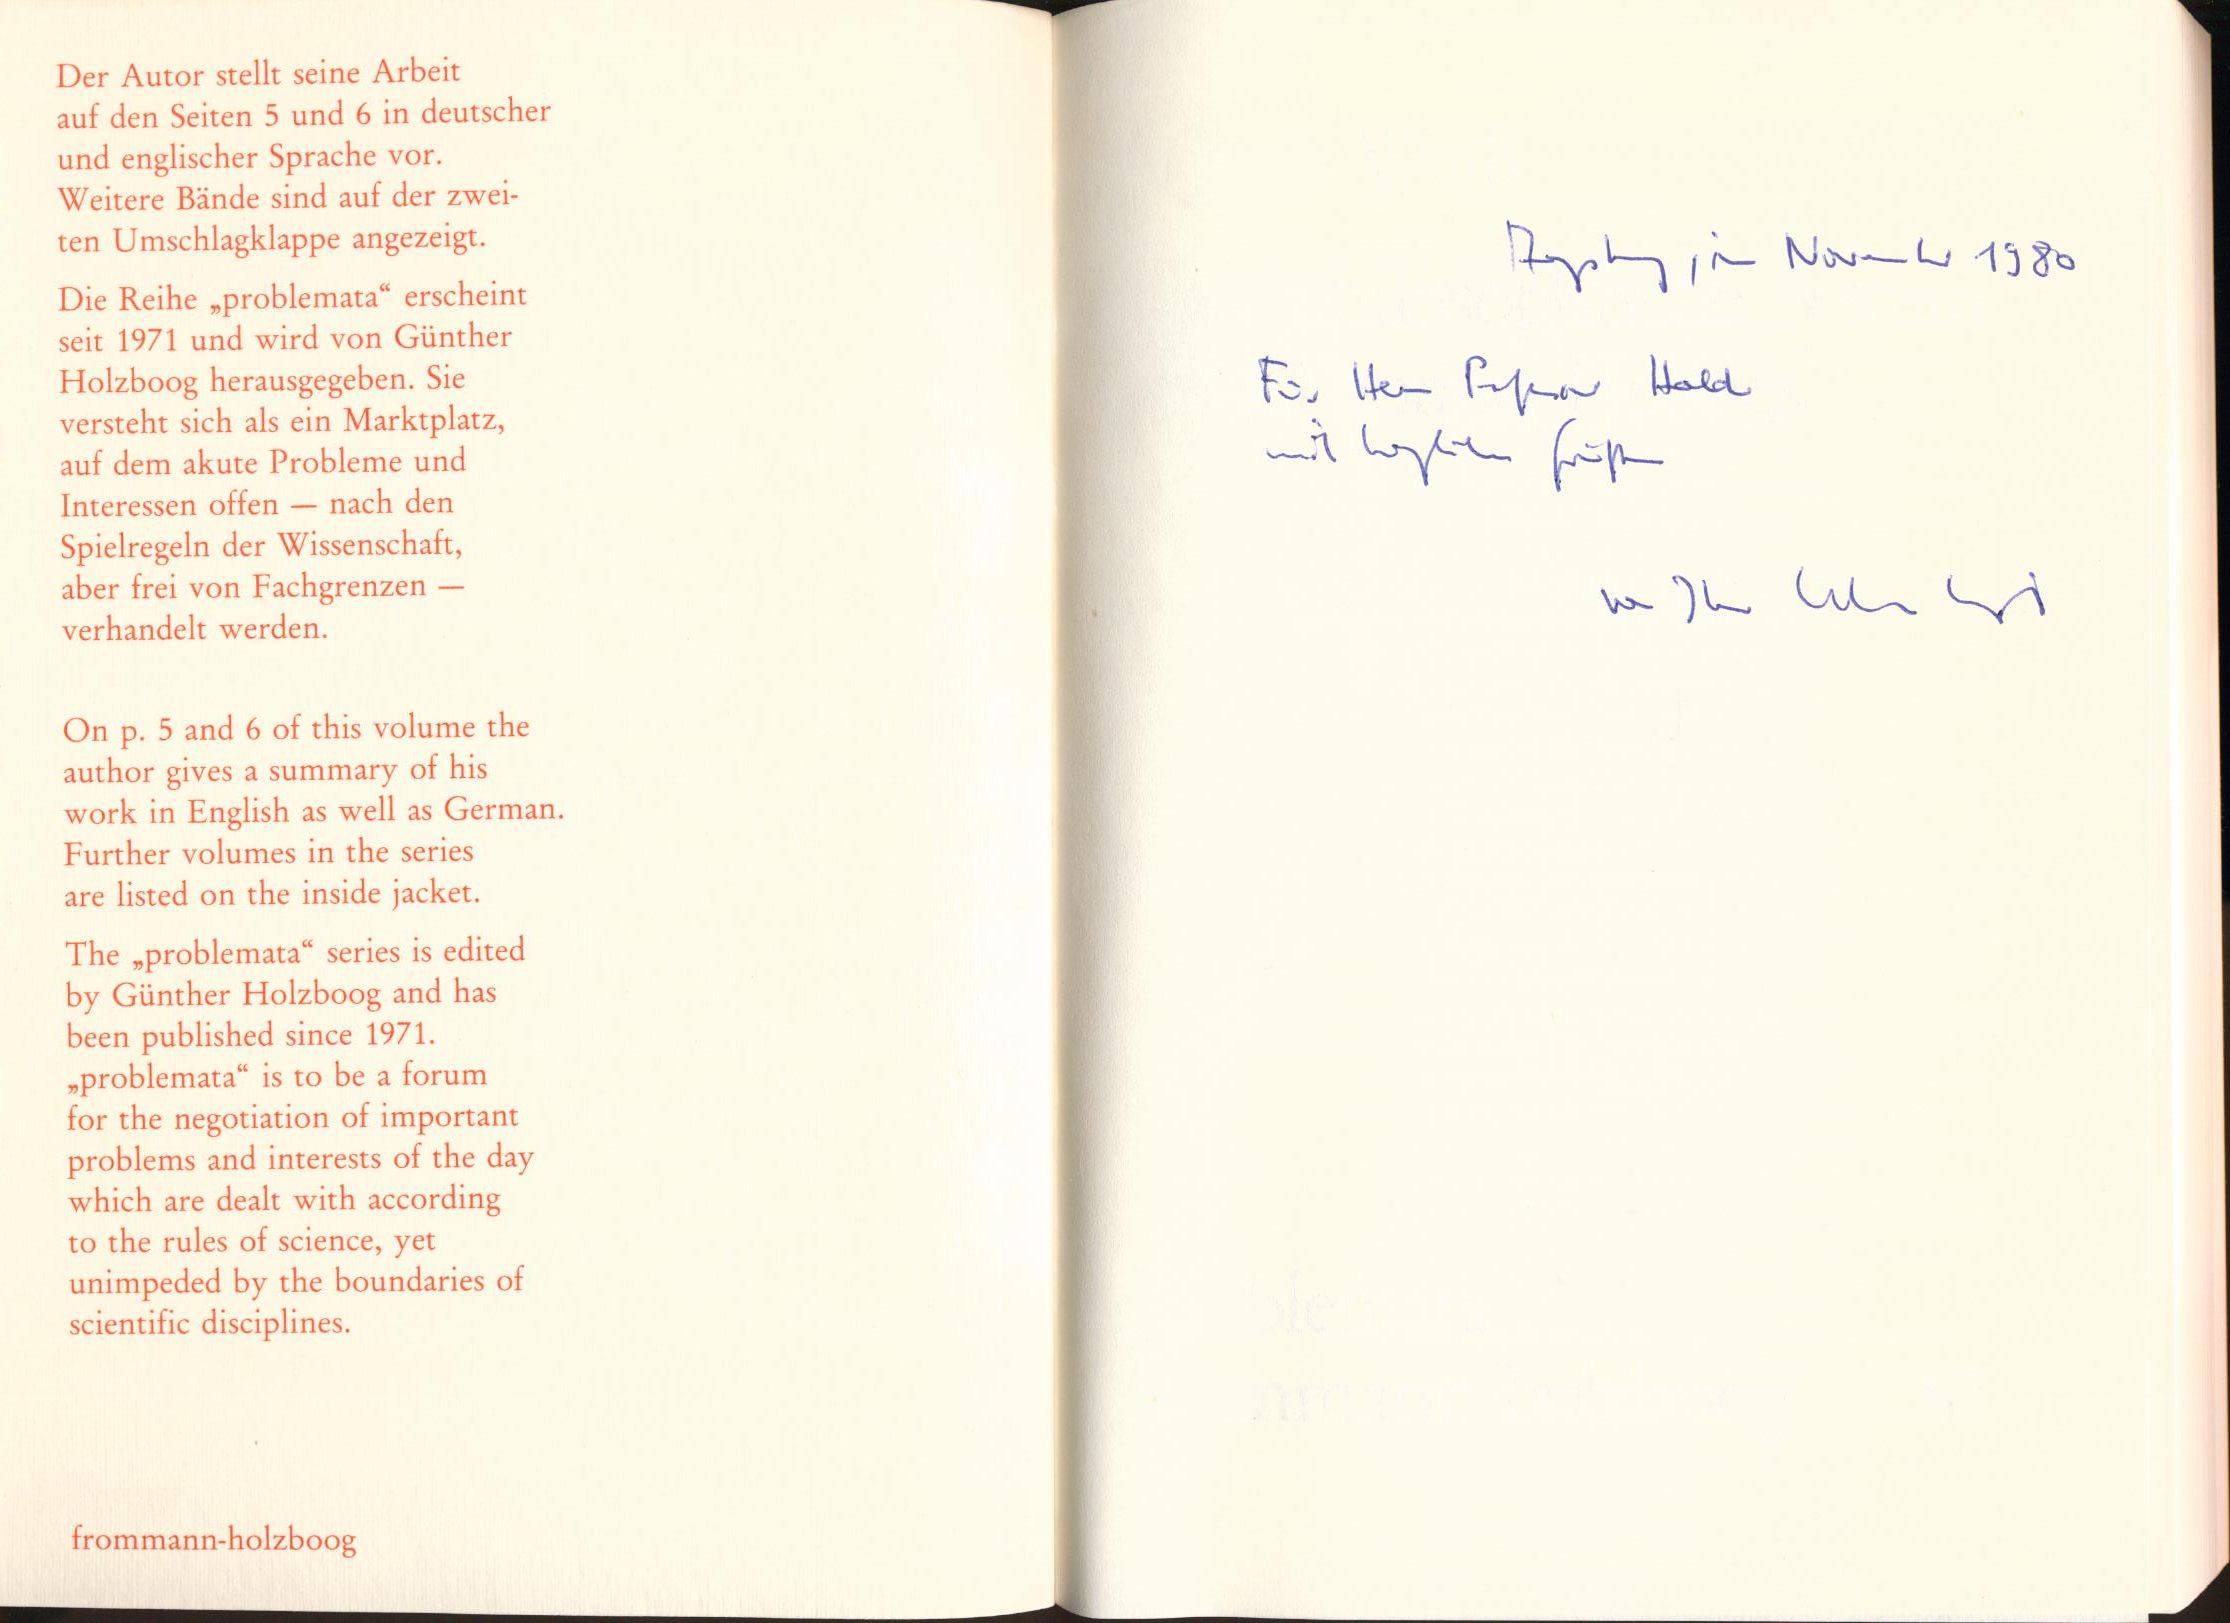 Der Autor stellt seine Arbeit
auf den Seiten 5 und 6 in deutscher
und englischer Sprache vor.
Weitere Bände sind auf der zwei-
ten Umschlagklappe angezeigt.
Die Reihe „problemata“ erscheint
seit 1971 und wird von Günther
Holzboog herausgegeben. Sie
versteht sich als ein Marktplatz,
auf dem akute Probleme und
Interessen offen — nach den
Spielregeln der Wissenschaft,
aber frei von Fachgrenzen —
verhandelt werden.
On p. 5 and 6 of this volume the
author gives a summary of his
work in English as well as German.
Further volumes in the series
are listed on the inside jacket.
The „problemata“ series is edited
by Günther Holzboog and has
been published since 1971.
„problemata“ is to be a forum
for the negotiation of important
problems and interests of the day
which are dealt with according
to the rules of science, yet
unimpeded by the boundaries of
scientific disciplines.
frommann-holzboog
Augsburg, im November 1980
Für Herrn Professor Held
mit herzlichen Grüßen
von Ihrem